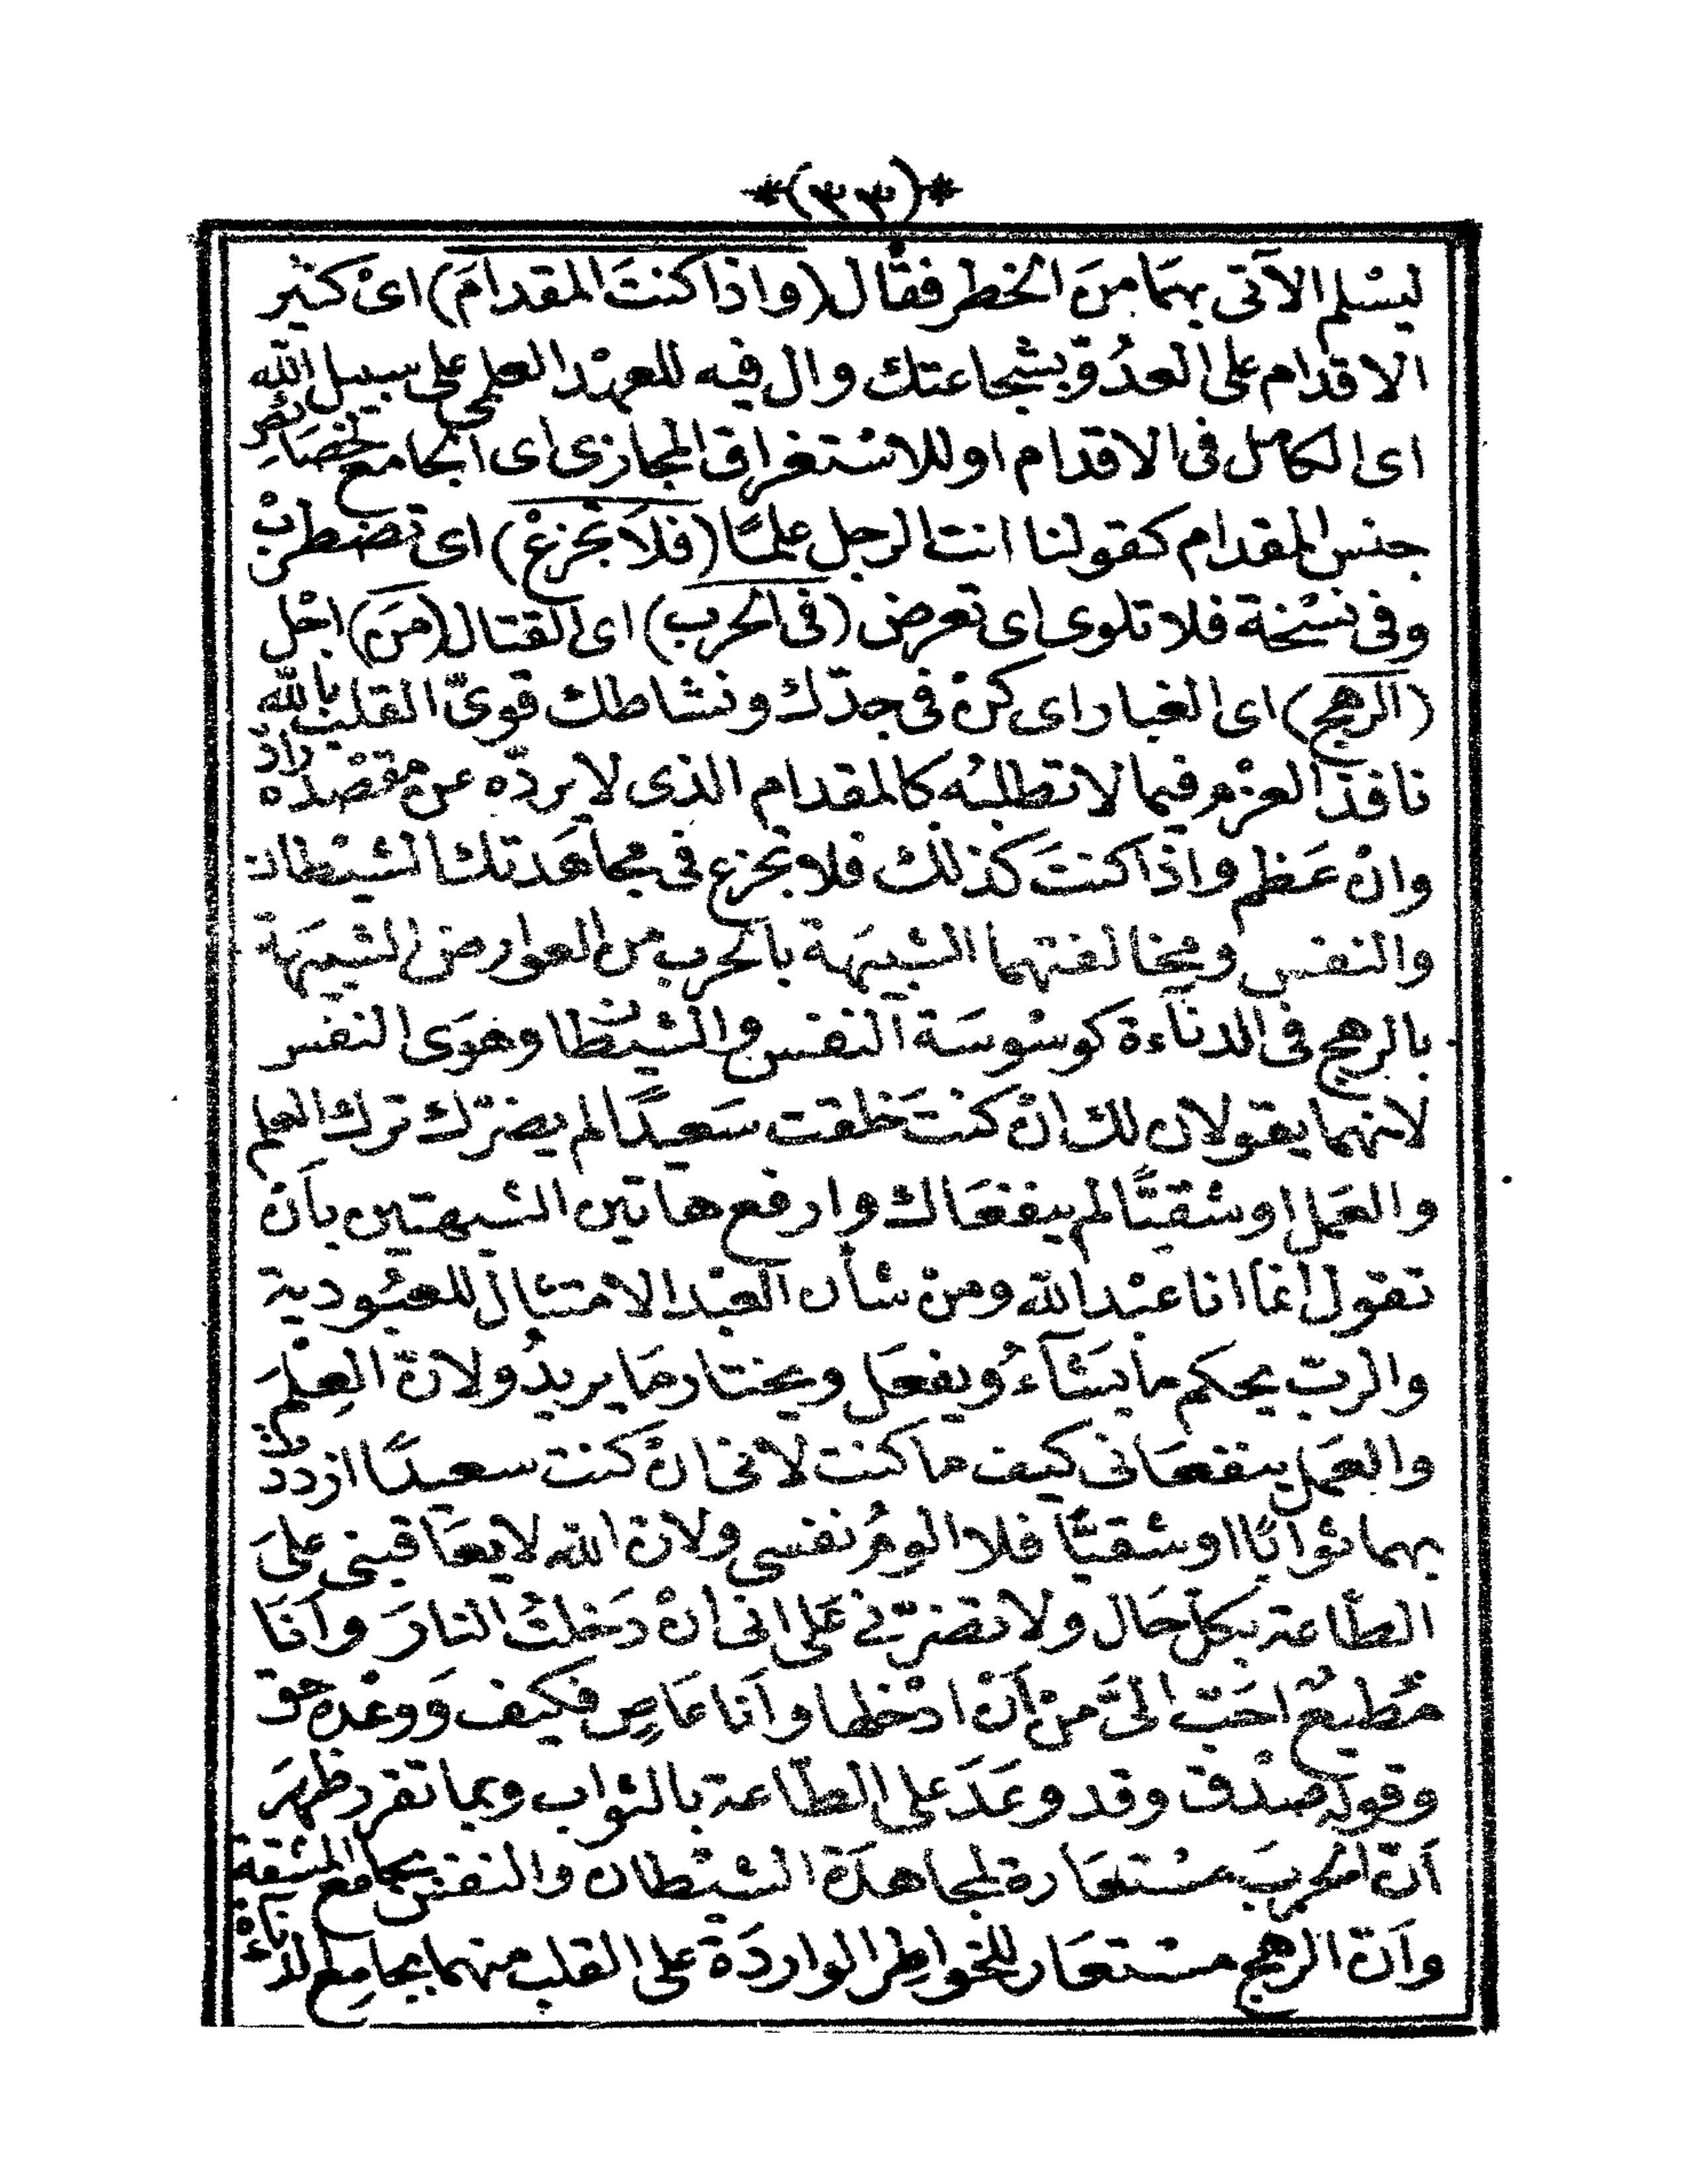 *(٣٣)*
ليسْلم الآتى بهمَا منَ الخطر فقال (واذا كنتَ المقدامَ) اىْ كثير
الاقدام على العدُوّ بشجاعتك وال فيه للعهْد العلمى على سبيل الله
اى الكامل فى الاقدام او للاسْتغراق المجازى اى الجامع لخصَائِصِ
جنس المقدام كقولنا انت الرجل علمًا (فلاَ تجزعْ) اى تضطربْ
وفى نسْخة فلا تلوى اى تعرض (فى الحرب) اى القتال (منَ) اجْل
(الرهج) اى الغبار اى كنْ فى جدّك ونشاطك قوىّ القلب بالله
نافذ العزْم فيما لا تطلبُه كالمقدام الذى لا يردّه عن مقصْده رادّ
وانْ عَظم واذا كنتَ كذلك فلا تجزع فى مجاهَدتك الشيْطان
والنفس ومخالفتهما الشبيَهة بالحرب من العوارض الشبيَهة
بالرهج فى الدناءة كوسْوسَة النفس والشيْطان وهَوَى النفس
لانهما يقولان لك انْ كنتَ خلقت سَعيدًا لم يضرّك ترك العلم
والعَمل او شقيًّا لم ينفعَاك وارفع هاتين الشبهتين باَن
تقول انمَا انا عبْد الله ومنْ شأن العبْد الامتثال للعبُودية
والربّ يحكم ما يَشَآءُ ويفعَل ويختار مَا يريدُ ولانّ العِلمَ
والعَمل ينفعَانى كيف ما كنت لانى انْ كنت سعيدًا ازددْتُ
بهما ثوابًا او شقيًّا فلا الومُ نفسى ولانّ الله لا يعَاقبنى علىَ
الطّاعة بكلّ حَال ولا تضرّنى عَلى انى انْ دَخلتُ النارَ واَنَا
مُطيعٌ احَبّ الىَّ منْ اَنْ ادْخلها واَنَا عَاصٍ فكيف وَوعْده حق
وقوله صدْق وقد وعَدَ على الطّاعة بالثواب وبما تقرر ظهَرَ
اَنّ الحربَ مسْتعَارة لمجاهدَة الشيْطان والنفس بجامع المشقة
واَنّ الرهج مسْتعَار للخواطِر الواردَة على القلب منهما بجامِع الدناءَة